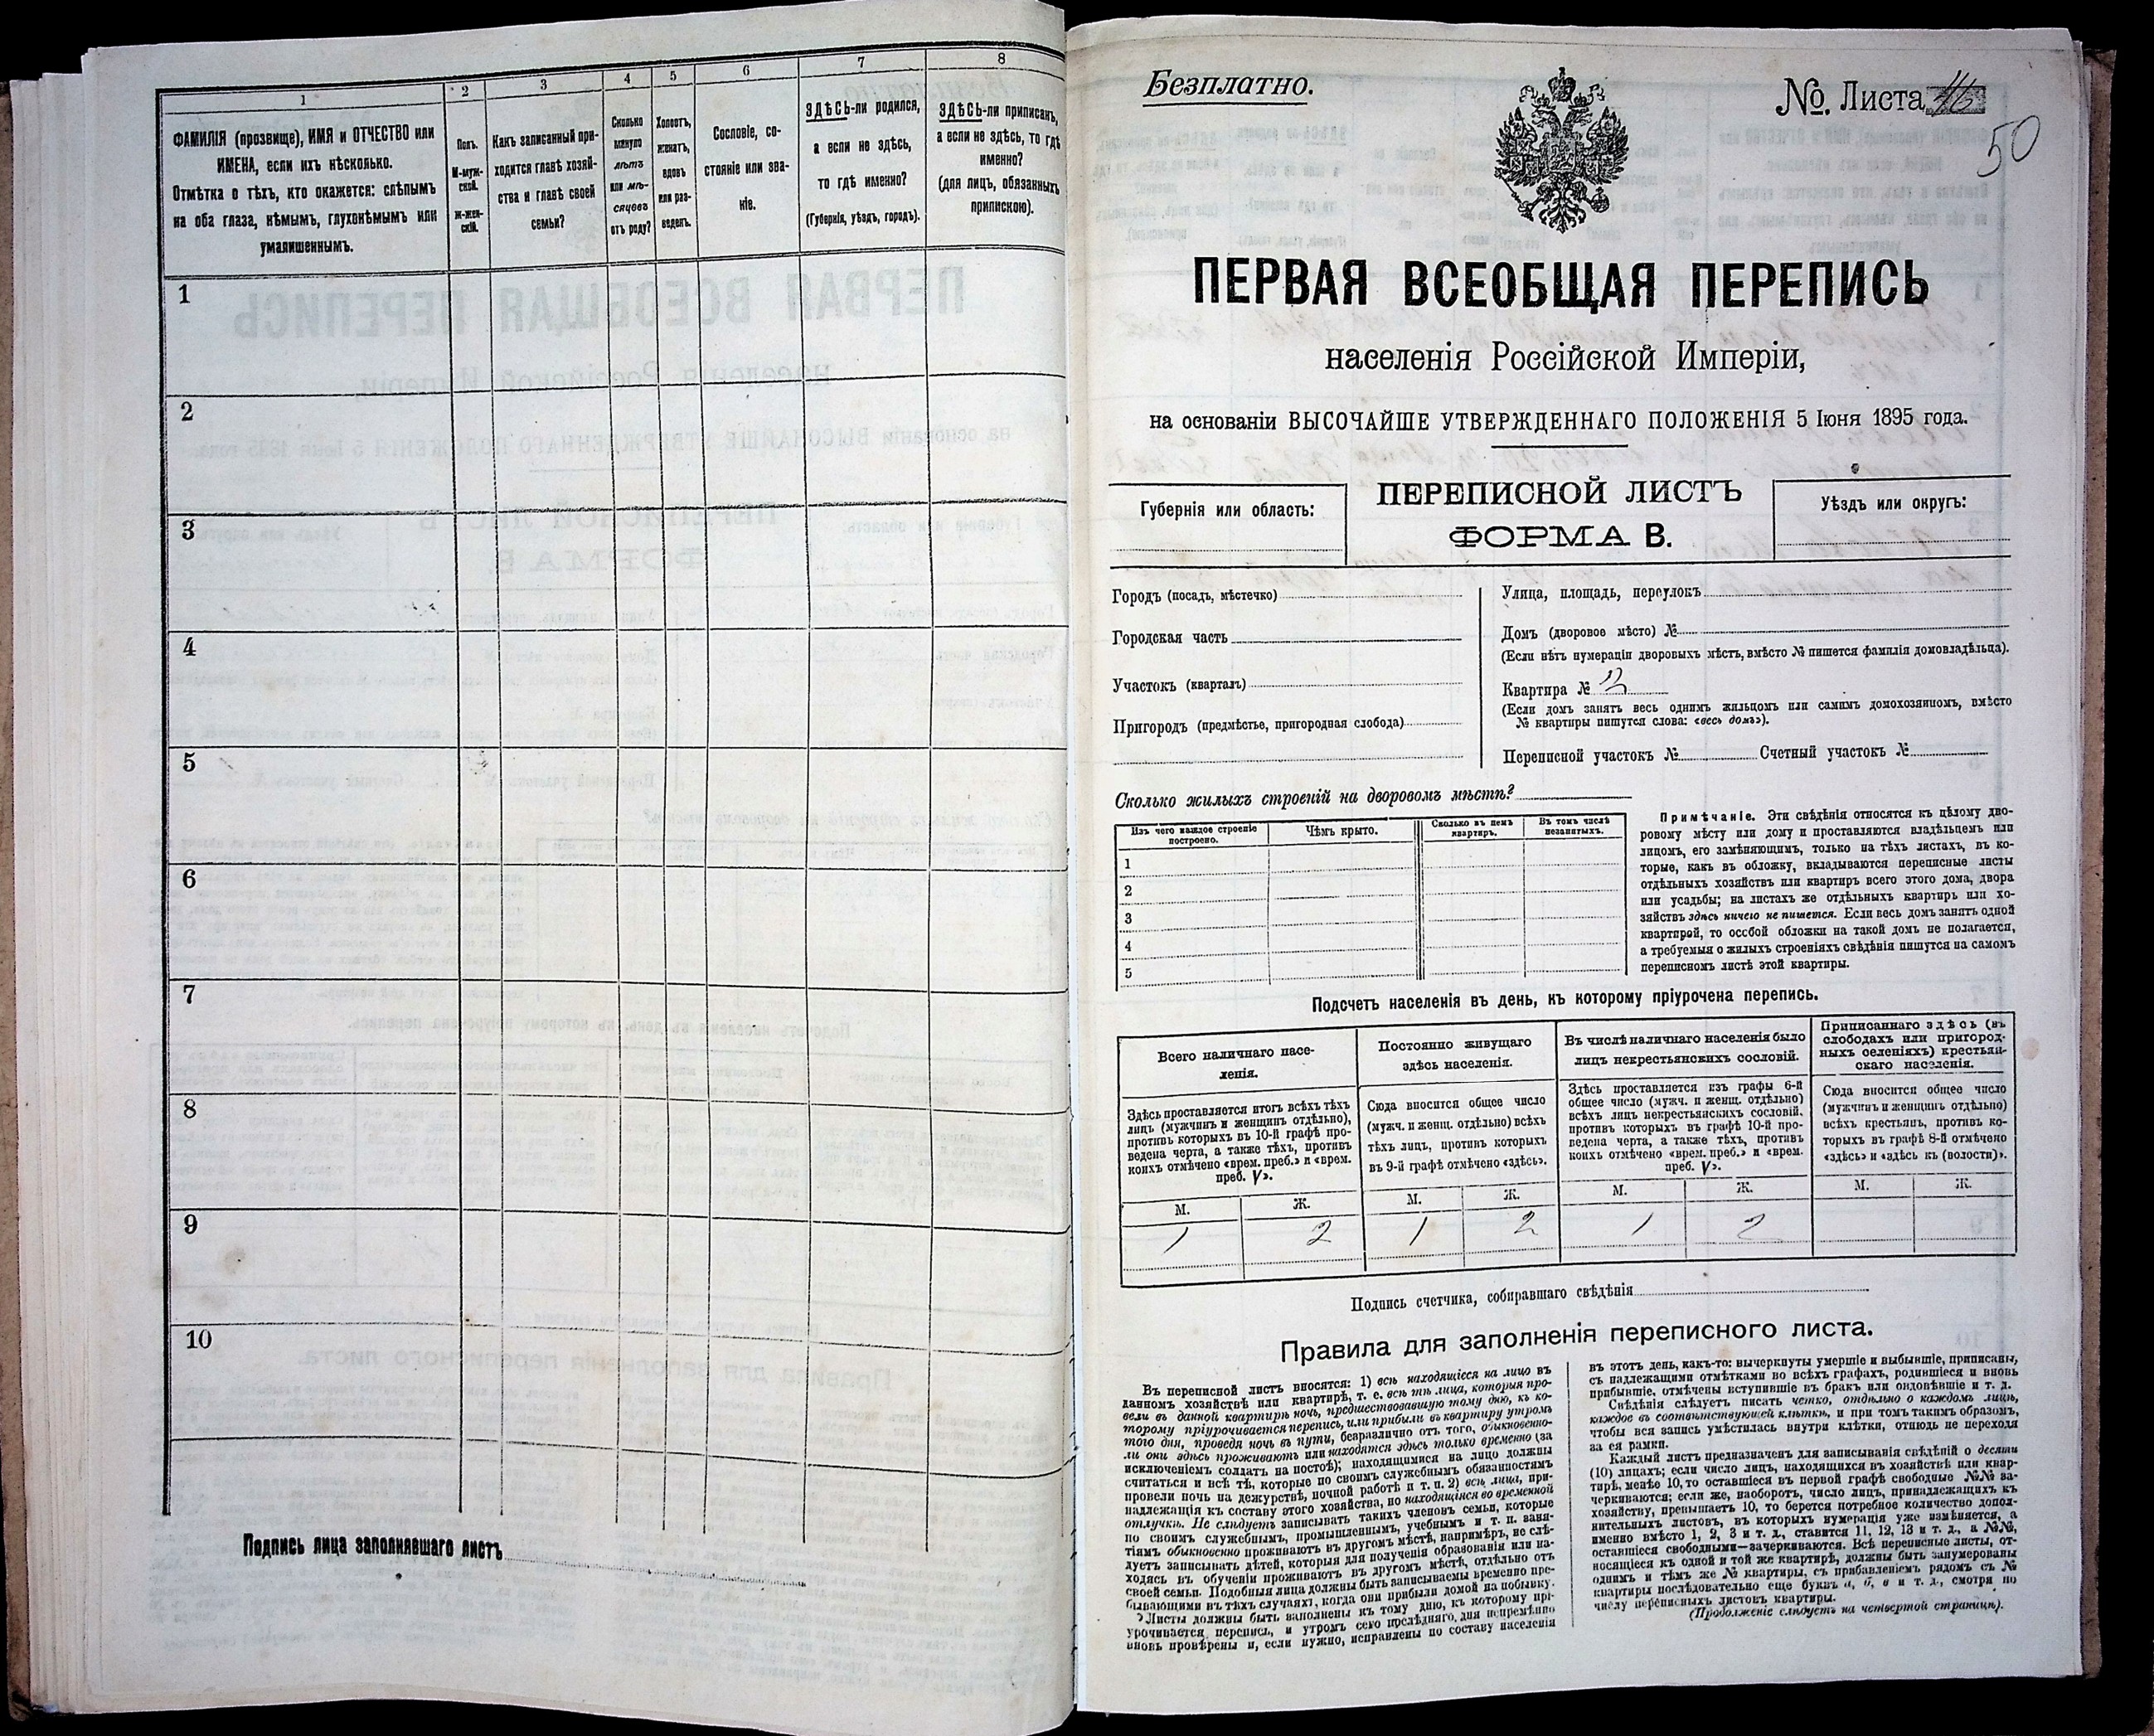 1
2
3
4
5
6
7
8
ФАМИЛІЯ (прозвище), ИМЯ и ОТЧЕСТВО или
ИМЕНА, если ихъ нѣсколько.
Отмѣтка о тѣхъ, кто окажется: слѣпымъ
на оба глаза, нѣмымъ, глухонѣмымъ или
умалишеннымъ.
Полъ.
М-муж-
ской.
ж-жен-
скій.
Какъ записанный при-
ходится главѣ хозяй-
ства и главѣ своей
семьи?
Сколько
минуло
лѣтъ
или мѣ-
сяцевъ
отъ роду?
Холостъ,
женатъ,
вдовъ
или раз-
веденъ.
Сословіе, со-
стояніе или зва-
ніе.
ЗДѢСЬ-ли родился,
а если не здѣсь,
то гдѣ именно?
(Губернія, уѣздъ, городъ).
ЗДѢСЬ-ли приписанъ,
а если не здѣсь, то гдѣ
именно?
(для лицъ, обязанныхъ
припискою).
1
2
3
4
5
6
7
8
9
10
Подпись лица заполнявшаго листъ
Безплатно.
№. Листа 46
50
ПЕРВАЯ ВСЕОБЩАЯ ПЕРЕПИСЬ
населенія Россійской Имперіи,
на основаніи ВЫСОЧАЙШЕ УТВЕРЖДЕННАГО ПОЛОЖЕНІЯ 5 Іюня 1895 года.
Губернія или область:
ПЕРЕПИСНОЙ ЛИСТЪ
ФОРМА В.
Уѣздъ или округъ:
Городъ (посадъ, мѣстечко)
Городская часть
Участокъ (кварталъ)
Пригородъ (предмѣстье, пригородная слобода)
Улица, площадь, переулокъ
Домъ (дворовое мѣсто) №
(Если нѣтъ нумераціи дворовыхъ мѣстъ, вмѣсто № пишется фамилія домовладѣльца).
Квартира № 12
(Если домъ занятъ весь однимъ жильцомъ или самимъ домохозяиномъ, вмѣсто
№ квартиры пишутся слова: «весь домъ»).
Переписной участокъ № Счетный участокъ №
Сколько жилыхъ строеній на дворовомъ мѣстѣ?
Изъ чего каждое строеніе
построено.
Чѣмъ крыто.
Сколько въ немъ
квартиръ.
Въ томъ числѣ
незанятыхъ.
1
2
3
4
5
Примѣчаніе. Эти свѣдѣнія относятся къ цѣлому дво-
ровому мѣсту или дому и проставляются владѣльцемъ или
лицомъ, его замѣняющимъ, только на тѣхъ листахъ, въ ко-
торые, какъ въ обложку, вкладываются переписные листы
отдѣльныхъ хозяйствъ или квартиръ всего этого дома, двора
или усадьбы; на листахъ же отдѣльныхъ квартиръ или хо-
зяйствъ здѣсь ничего не пишется. Если весь домъ занятъ одной
квартирой, то особой обложки на такой домъ не полагается,
а требуемыя о жилыхъ строеніяхъ свѣдѣнія пишутся на самомъ
переписномъ листѣ этой квартиры.
Подсчетъ населенія въ день, къ которому пріурочена перепись.
Всего наличнаго насе-
ленія.
Постоянно живущаго
здѣсь населенія.
Въ числѣ наличнаго населенія было
лицъ некрестьянскихъ сословій.
Приписаннаго здѣсь (въ
слободахъ или пригород-
ныхъ селеніяхъ) крестьян-
скаго населенія.
Здѣсь проставляется итогъ всѣхъ тѣхъ
лицъ (мужчинъ и женщинъ отдѣльно),
противъ которыхъ въ 10-й графѣ про-
ведена черта, а также тѣхъ, противъ
коихъ отмѣчено «врем. преб.» и «врем.
преб. V».
Сюда вносится общее число
(мужч. и женщ. отдѣльно) всѣхъ
тѣхъ лицъ, противъ которыхъ
въ 9-й графѣ отмѣчено «здѣсь».
Здѣсь проставляется изъ графы 6-й
общее число (мужч. и женщ. отдѣльно)
всѣхъ лицъ некрестьянскихъ сословій,
противъ которыхъ въ графѣ 10-й про-
ведена черта, а также тѣхъ, противъ
коихъ отмѣчено «врем. преб.» и «врем.
преб. V».
Сюда вносится общее число
(мужчинъ и женщинъ отдѣльно)
всѣхъ крестьянъ, противъ ко-
торыхъ въ графѣ 8-й отмѣчено
«здѣсь» и «здѣсь къ (волости)».
М. Ж. М. Ж. М. Ж. М. Ж.
1 2 1 2 1 2
Подпись счетчика, собиравшаго свѣдѣнія
Правила для заполненія переписного листа.
Въ переписной листъ вносятся: 1) всѣ находящіеся на лицо въ
данномъ хозяйствѣ или квартирѣ, т. е. всѣ тѣ лица, которыя про-
вели въ данной квартирѣ ночь, предшествовавшую тому дню, къ ко-
торому пріурочивается перепись, или прибыли въ квартиру утромъ
того дня, проведя ночь въ пути, безразлично отъ того, обыкновенно-
ли они здѣсь проживаютъ или находятся здѣсь только временно (за
исключеніемъ солдатъ на постоѣ); находящимися на лицо должны
считаться и всѣ тѣ, которые по своимъ служебнымъ обязанностямъ
провели ночь на дежурствѣ, ночной работѣ и т. п. 2) всѣ лица, при-
надлежащія къ составу этого хозяйства, но находящіяся во временной
отлучкѣ. Не слѣдуетъ записывать такихъ членовъ семьи, которые
по своимъ служебнымъ, промышленнымъ, учебнымъ и т. п. заня-
тіямъ обыкновенно проживаютъ въ другомъ мѣстѣ, напримѣръ, не слѣ-
дуетъ записывать дѣтей, которыя для полученія образованія или на-
ходясь въ обученіи проживаютъ въ другомъ мѣстѣ, отдѣльно отъ
своей семьи. Подобныя лица должны быть записываемы временно пре-
бывающими въ тѣхъ случаяхъ, когда они прибыли домой на побывку.
Листы должны быть заполнены къ тому дню, къ которому прі-
урочивается перепись, и утромъ сего послѣдняго дня непремѣнно
вновь провѣрены и, если нужно, исправлены по составу населенія
въ этотъ день, какъ-то: вычеркнуты умершіе и выбывшіе, приписаны,
съ надлежащими отмѣтками во всѣхъ графахъ, родившіеся и вновь
прибывшіе, отмѣчены вступившіе въ бракъ или овдовѣвшіе и т. д.
Свѣдѣнія слѣдуетъ писать четко, отдѣльно о каждомъ лицѣ,
каждое въ соотвѣтствующей клѣткѣ, и при томъ такимъ образомъ,
чтобы вся запись умѣстилась внутри клѣтки, отнюдь не переходя
за ея рамки.
Каждый листъ предназначенъ для записыванія свѣдѣній о десяти
(10) лицахъ; если число лицъ, находящихся въ хозяйствѣ или квар-
тирѣ, менѣе 10, то оставшіеся въ первой графѣ свободные №№ за-
черкиваются; если же, наоборотъ, число лицъ, принадлежащихъ къ
хозяйству, превышаетъ 10, то берется потребное количество допол-
нительныхъ листовъ, въ которыхъ нумерація уже измѣняется, а
именно вмѣсто 1, 2, 3 и т. д., ставится 11, 12, 13 и т. д., а №№,
оставшіеся свободными—зачеркиваются. Всѣ переписные листы, от-
носящіеся къ одной и той же квартирѣ, должны быть занумерованы
однимъ и тѣмъ же № квартиры, съ прибавленіемъ рядомъ съ №
квартиры послѣдовательно еще буквъ а, б, в и т. д., смотря по
числу переписныхъ листовъ квартиры.
(Продолженіе слѣдуетъ на четвертой страницѣ).